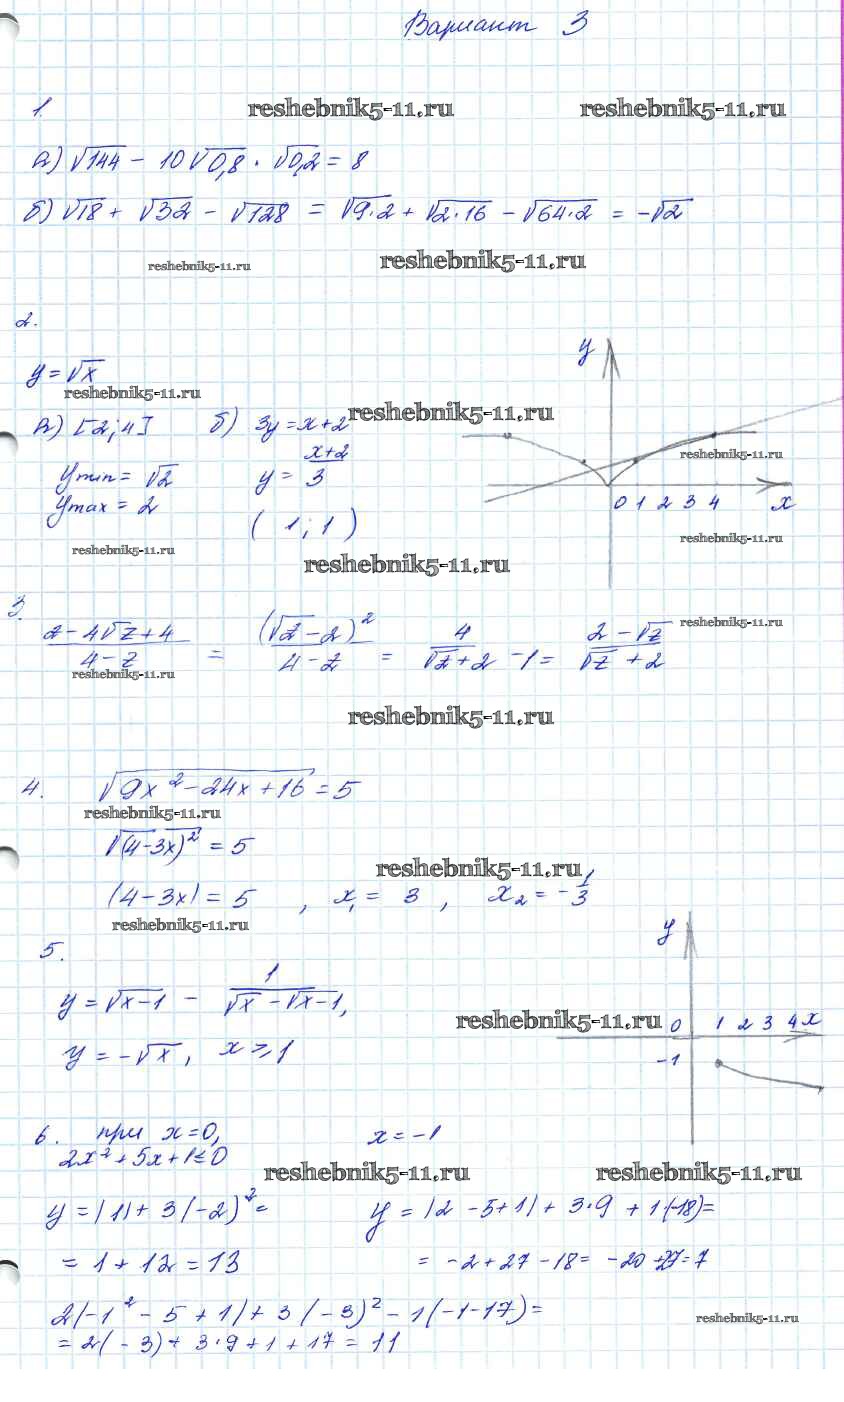 Вариант 3
1.
reshebnik5-11.ru reshebnik5-11.ru
а) √144 - 10√0,8 · √0,2 = 8
б) √18 + √32 - √128 = √9·2 + √2·16 - √64·2 = -√2
reshebnik5-11.ru reshebnik5-11.ru
2.
y
y = √x
reshebnik5-11.ru
reshebnik5-11.ru
а) [2; 4] б) 3y = x+2
reshebnik5-11.ru
y min = √2 y = x+2/3
y max = 2
0 1 2 3 4 x
( 1 ; 1 )
reshebnik5-11.ru reshebnik5-11.ru
reshebnik5-11.ru
3.
z - 4√z + 4 / 4 - z = (√z - 2)² / 4 - z = 4 / √z + 2 - 1 = 2 - √z / √z + 2
reshebnik5-11.ru
reshebnik5-11.ru
reshebnik5-11.ru
4. √9x² - 24x + 16 = 5
reshebnik5-11.ru
√(4-3x)² = 5
reshebnik5-11.ru
|4-3x| = 5 , x₁ = 3 , x₂ = -1/3
reshebnik5-11.ru
5.
y
y = √x-1 - 1/√x - √x-1,
reshebnik5-11.ru
0 1 2 3 4 x
y = -√x, x ⩾ 1
-1
6. при x=0, x = -1
2x² + 5x + 1 ≤ 0
reshebnik5-11.ru reshebnik5-11.ru
y = |1| + 3(-2)² = y = |2 - 5 + 1| + 3·9 + 1(-18) =
= 1 + 12 = 13 = -2 + 27 - 18 = -20 + 27 = 7
2(-1² - 5 + 1) + 3(-3)² - 1(-1-17) =
reshebnik5-11.ru
= 2(-3) + 3·9 + 1 + 17 = 11